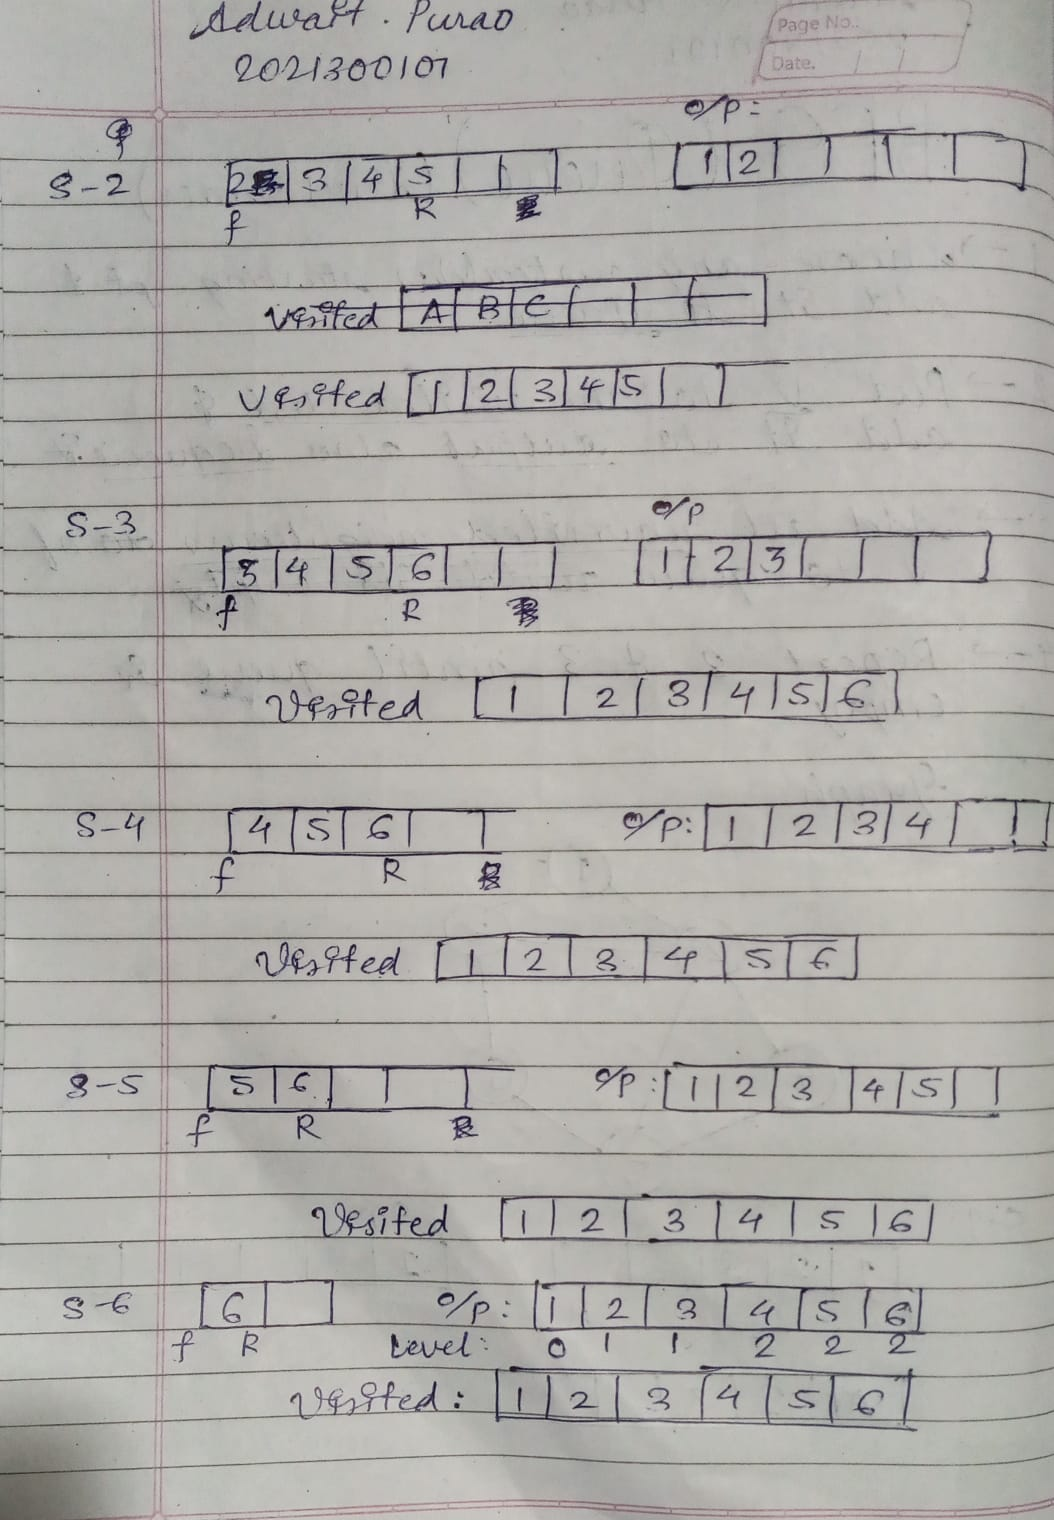 Adwait . Purao
2021300101
Page No..
Date. / /
o/p =
S-2 2 3 4 5 1 2
f R
Visited A B C
Visited 1 2 3 4 5
S-3 o/p
3 4 5 6 1 2 3
f R
Visited 1 2 3 4 5 6
S-4 4 5 6 o/p: 1 2 3 4
f R
Visited 1 2 3 4 5 6
S-5 5 6 o/p: 1 2 3 4 5
f R
Visited 1 2 3 4 5 6
S-6 6 o/p: 1 2 3 4 5 6
f R Level: 0 1 1 2 2 2
Visited: 1 2 3 4 5 6